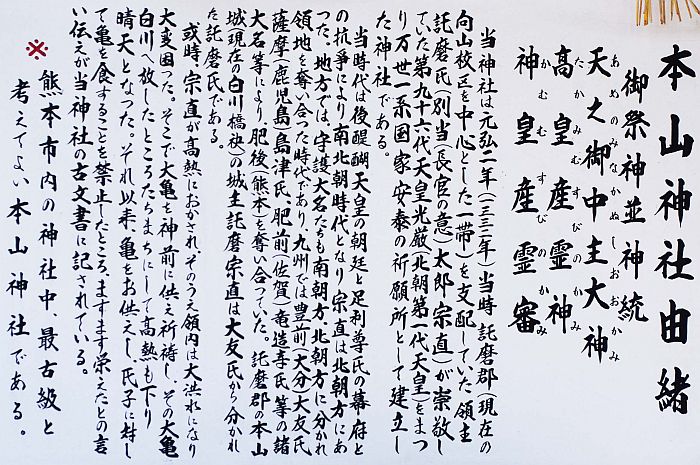 本山神社由緒
御祭神並神統
天之御中主大神
あめのみなかぬしおおかみ
高皇産霊神
たかみむすびのかみ
神皇産霊審
かむみむすびのかみ
当神社は元弘二年(一三三二年)当時託磨郡(現在の
向山校区を中心とした一帯)を支配していた領主
託磨氏(別当(長官の意)太郎宗直)が崇敬し
ていた第九十六代天皇光厳(北朝第一代天皇)をまつ
り万世一系国家安泰の祈願所として建立し
た神社である。
当時代は後醍醐天皇の朝廷と足利尊氏の幕府と
の抗争により、南北朝時代となり宗直は北朝方にあ
った。地方では、守護大名たちも南朝方、北朝方に分かれ
領地を奪い合った時代であり、九州では豊前(大分)大友氏
薩摩(鹿児島)島津氏、肥前(佐賀)竜造寺氏等の諸
大名等により、肥後(熊本)を奪い合っていた。託磨郡の本山
城(現在の白川橋袂)の城主託磨宗直は大友氏から分かれ
た託磨氏である。
或時、宗直が高熱におかされ、そのうえ領内は大洪水になり
大変困った。そこで大亀を神前に供え祈祷し、その大亀
白川へ放したところたちまちにして高熱も下り
晴天となった。それ以来、亀をお供えし、氏子に対し
て亀を食することを禁止したところ、ますます栄えたとの言
い伝えが当神社の古文書に記されている。
※ 熊本市内の神社中、最古級と
考えてよい本山神社である。